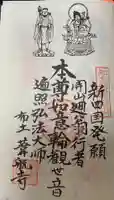 新四国発願
開山廻翁行者
本尊如意輪觀世音
遍照弘法大師
布土 葦航寺